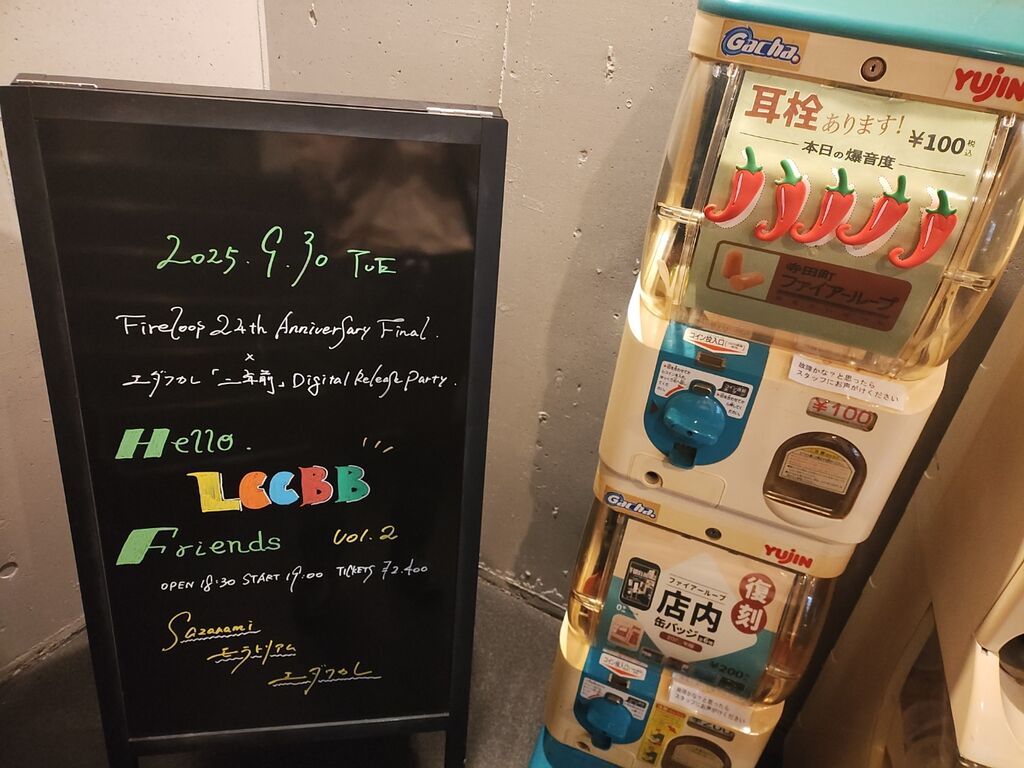 2025.9.30 TUE
Fireloop 24th Anniversary Final.
×
エダフカレ「二年前」Digital Release Party.
Hello.
LCCBB
Friends vol.2
OPEN 18:30 START 19:00 TICKETS ¥2.400
Sazanami
モラトリアム
エダフカレ
Gacha
YUJIN
耳栓あります! ¥100 税込
本日の爆音度
寺田町
ファイアーループ
コイン投入口
故障かな?と思ったら
スタッフにお声がけください
¥100
Gacha
YUJIN
復刻
ファイアーループ
店内
缶バッジ
¥200
コイン投入口
故障かな?と思ったら
スタッフにお声がけください
¥200